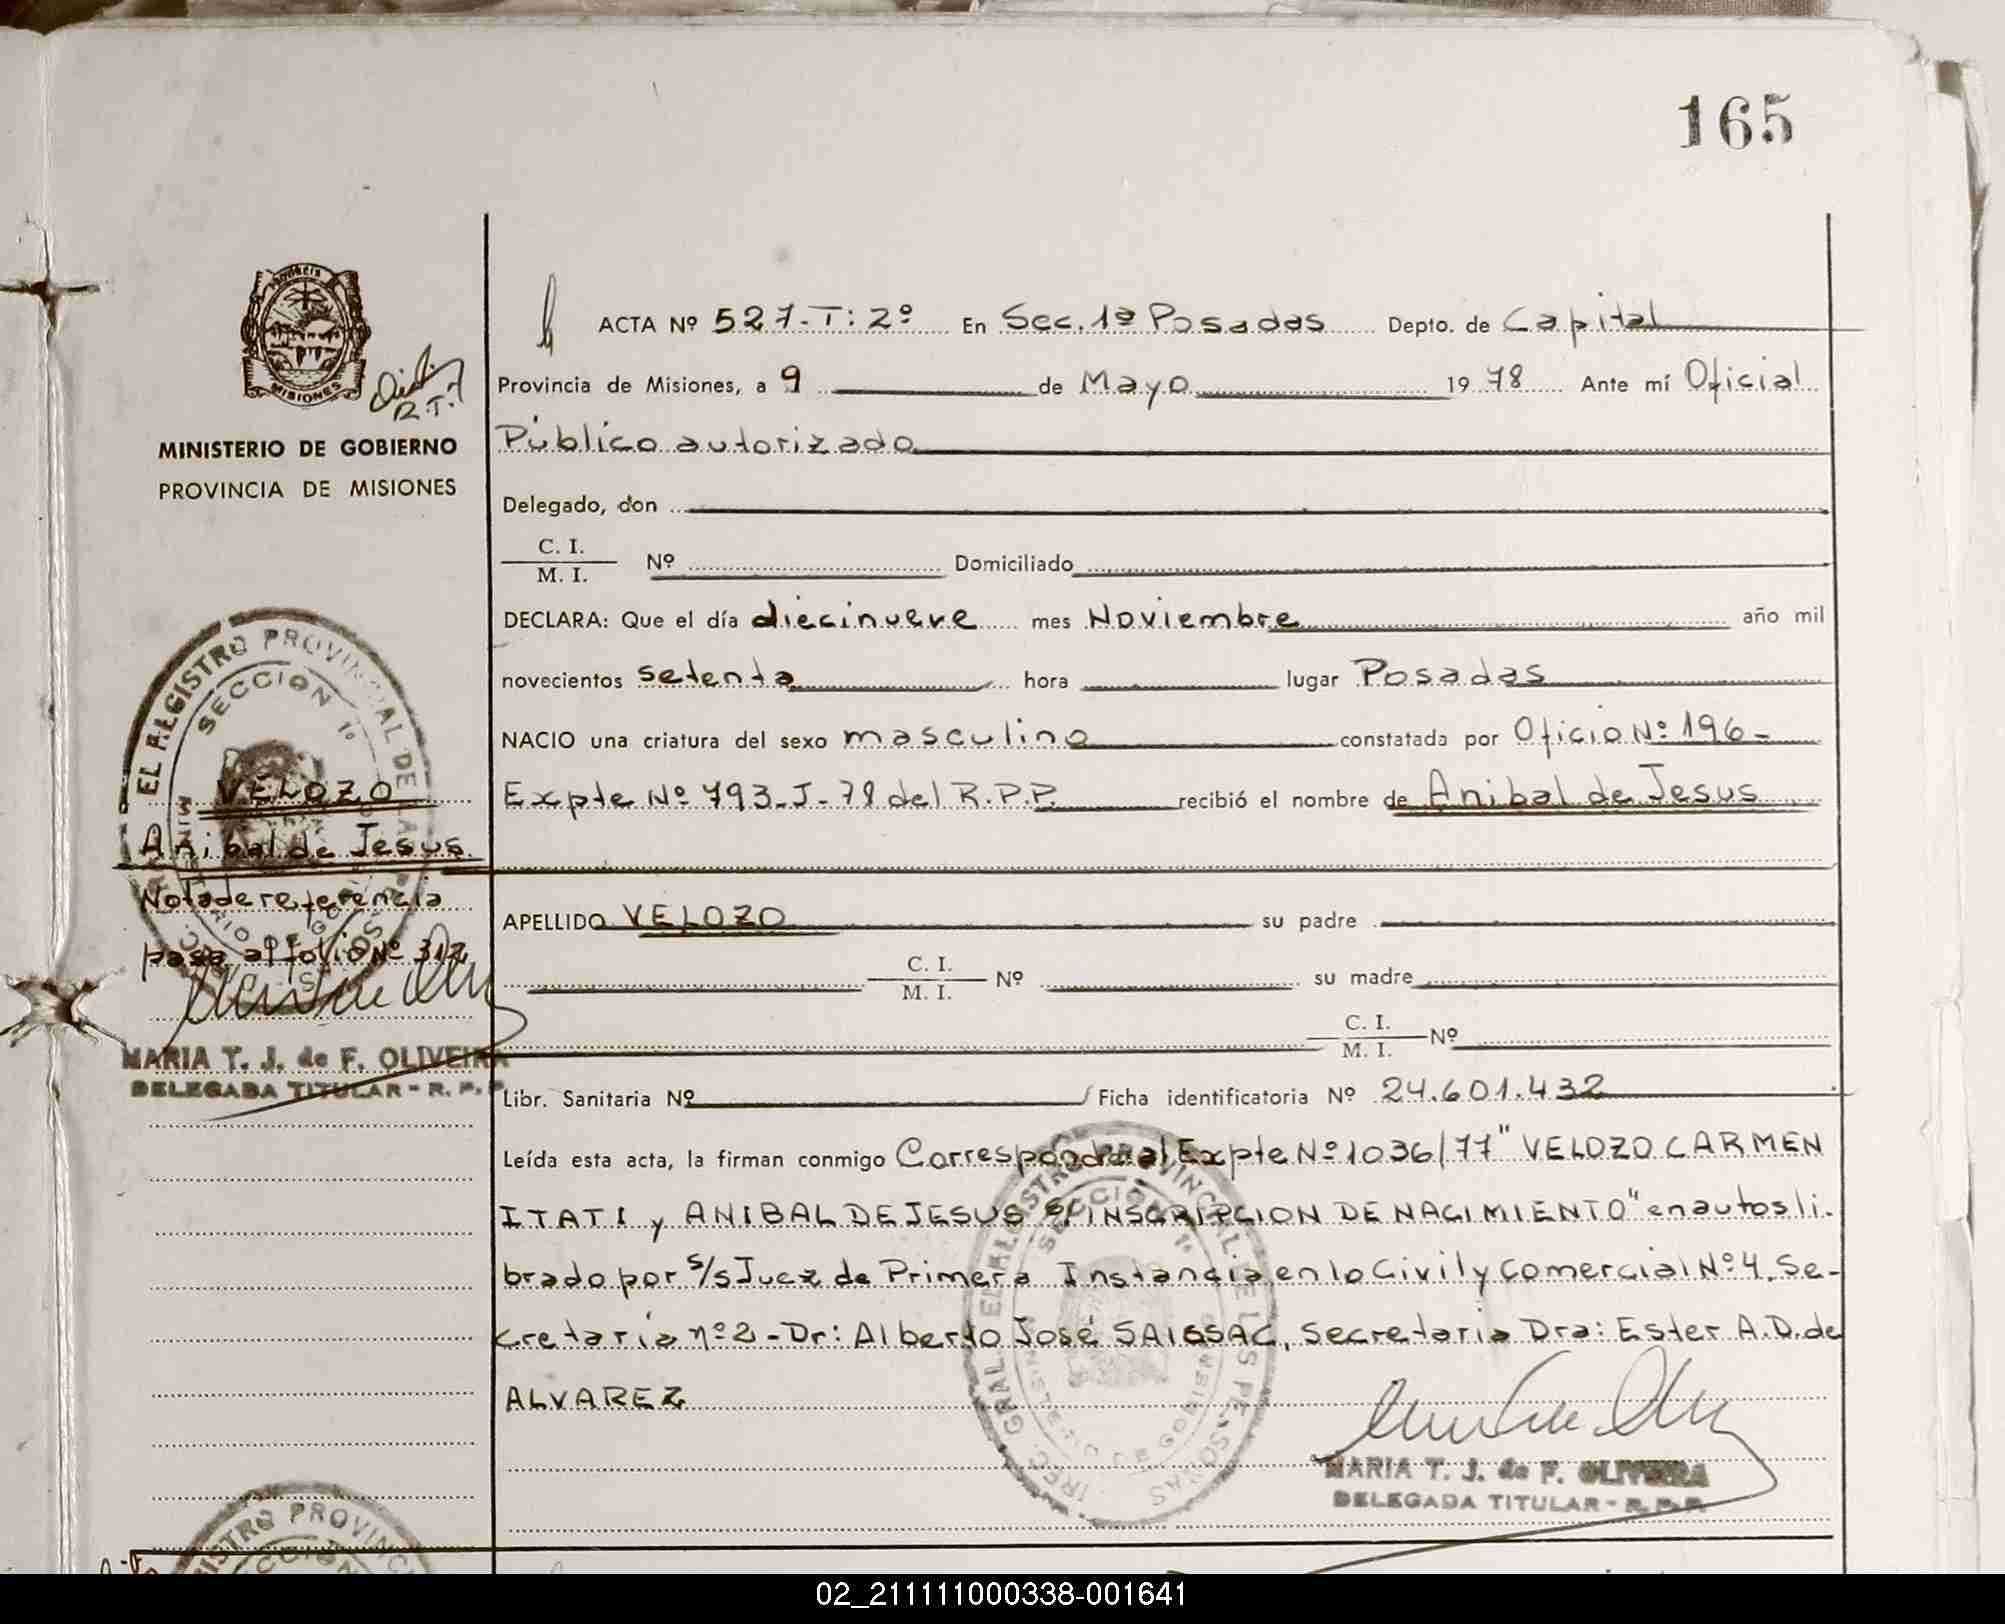 165
MISIONES
R.T.
MINISTERIO DE GOBIERNO
PROVINCIA DE MISIONES
ACTA Nº 527-T: 2º En Sec. 1ª Posadas Depto. de Capital
Provincia de Misiones, a 9 de Mayo 1978 Ante mí Oficial
Público autorizado
Delegado, don
C. I.
M. I. Nº Domiciliado
DECLARA: Que el día diecinueve mes Noviembre año mil
novecientos setenta hora lugar Posadas
NACIO una criatura del sexo masculino constatada por Oficio Nº 196-
Expte Nº 793-J-78 del R.P.P. recibió el nombre de Anibal de Jesus
APELLIDO VELOZO su padre
C. I.
M. I. Nº su madre
C. I.
M. I. Nº
Libr. Sanitaria Nº Ficha identificatoria Nº 24.601.432
Leída esta acta, la firman conmigo Corresponde al Expte Nº 1036/77 " VELOZO CARMEN
ITATI y ANIBAL DE JESUS S/ INSCRIPCION DE NACIMIENTO" en autos li-
brado por s/s Juez de Primera Instancia en lo Civil y Comercial Nº 4, Se-
cretaría nº 2 - Dr: Alberto José SAISSAC, Secretaria Dra: Ester A.D. de
ALVAREZ
MARIA T. J. de F. OLIVEIRA
DELEGADA TITULAR - R. P. P.
VELOZO
Anibal de Jesus
Nota de referencia
pasa al folio Nº 312
MARIA T. J. de F. OLIVEIRA
DELEGADA TITULAR - R. P. P.
REGISTRO PROVINCIAL DE LAS PERSONAS
SECCION 1º
MINISTERIO DE GOBIERNO
02_211111000338-001641